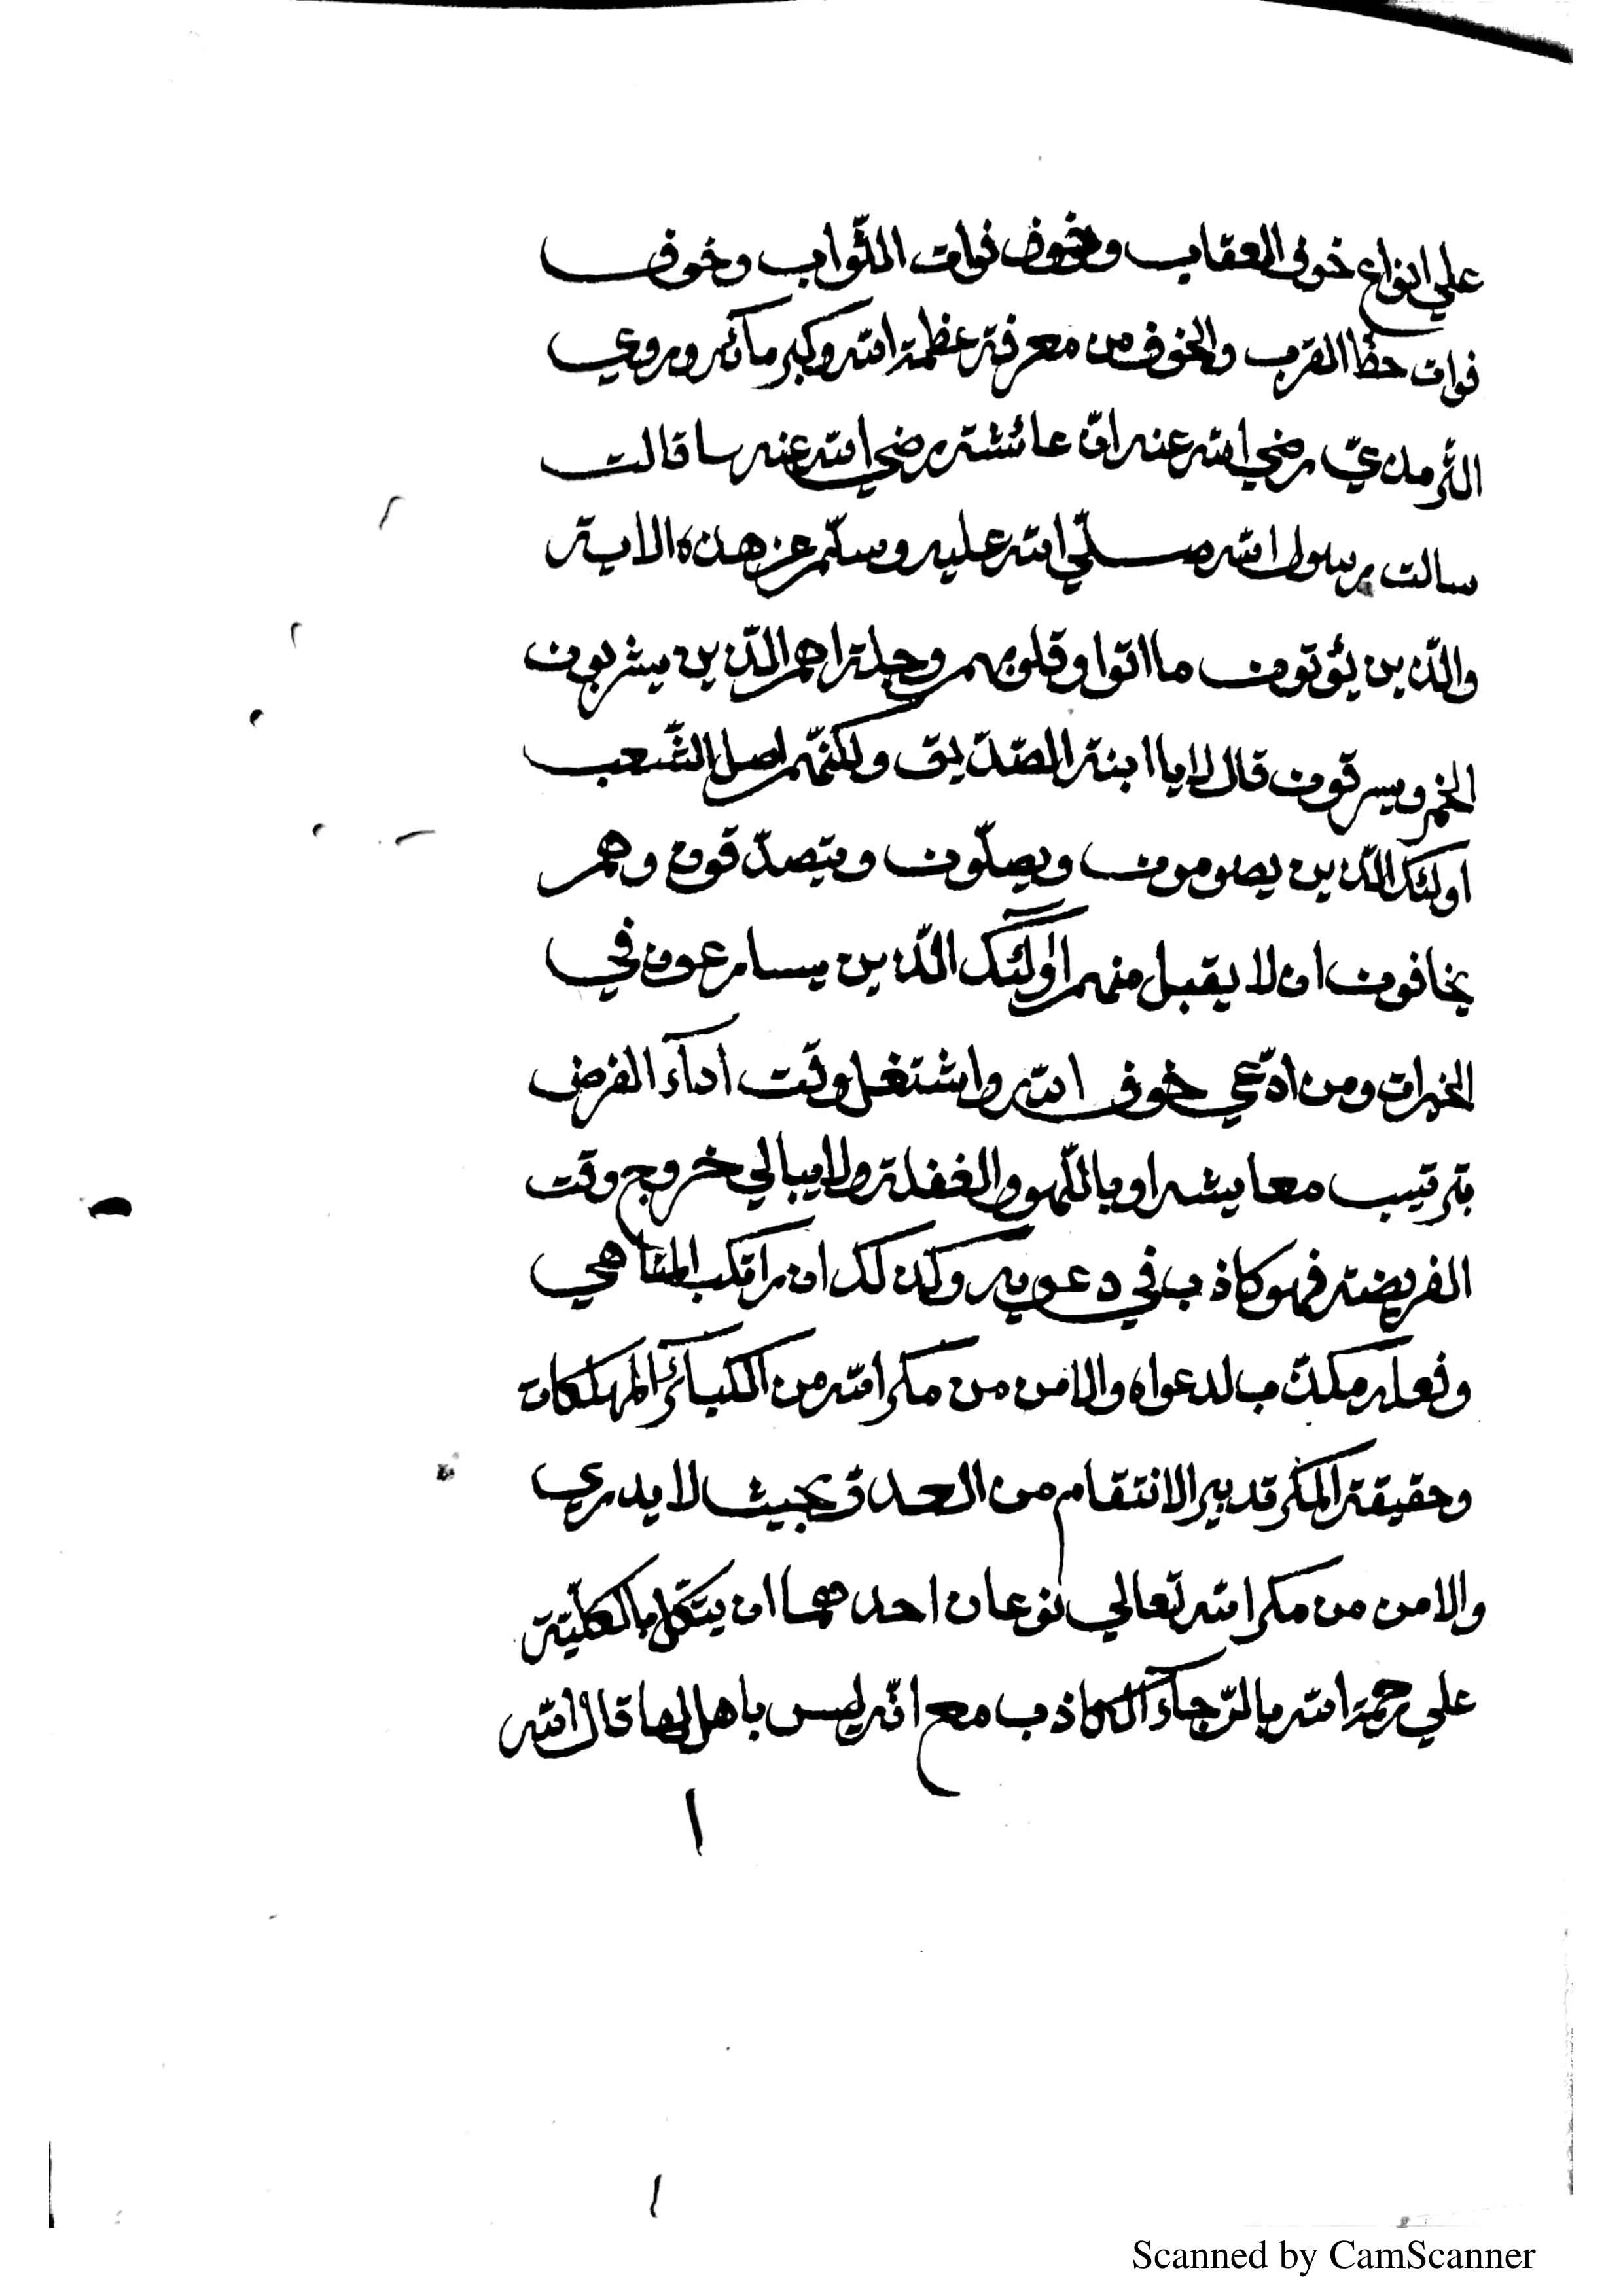 علي انواع خوف العقاب وخوف فوات الثّواب وخوف
فوات حظّ القرب والخوف من معرفة عظمة الله وكبرمائه وروي
الترمذيّ رضي الله عنه انّ عائشة رضي الله عنها قالت
سالت رسول الله صلّي الله عليه وسلّم عن هذه الاية
والّذين يؤتون ما اتوا وقلوبهم وجلة اهم الّذين يشربون
الخمر ويسرقون قال لا يا ابنة الصّدّيق ولكنّهم اصل الشّعب
اولئك الّذين يصومون ويصلّون ويتصدّقون وهم
يخافون ان لا يقبل منهم اولئك الّذين يسارعون في
الخيرات ومن ادّعي خوف الله واشتغل وقت ادآء الفرض
بترتيب معايشه او باللّهو والغفلة ولا يبالي خروج وقت
الفريضة فهو كاذب في دعويه وكذلك ان راتكب المناهي
وفعله مكذّب لدعواه والامن من مكر الله من الكبآئر المهلكات
وحقيقة المكر تدبير الانتقام من العدوّ بحيث لا يدري
والامن من مكر الله تعالي نوعان احدهما ان يتّكل بالكلّيّة
علي رحمة الله بالرّجآء الكاذب مع انّه ليس باهل لها قال الله
Scanned by CamScanner